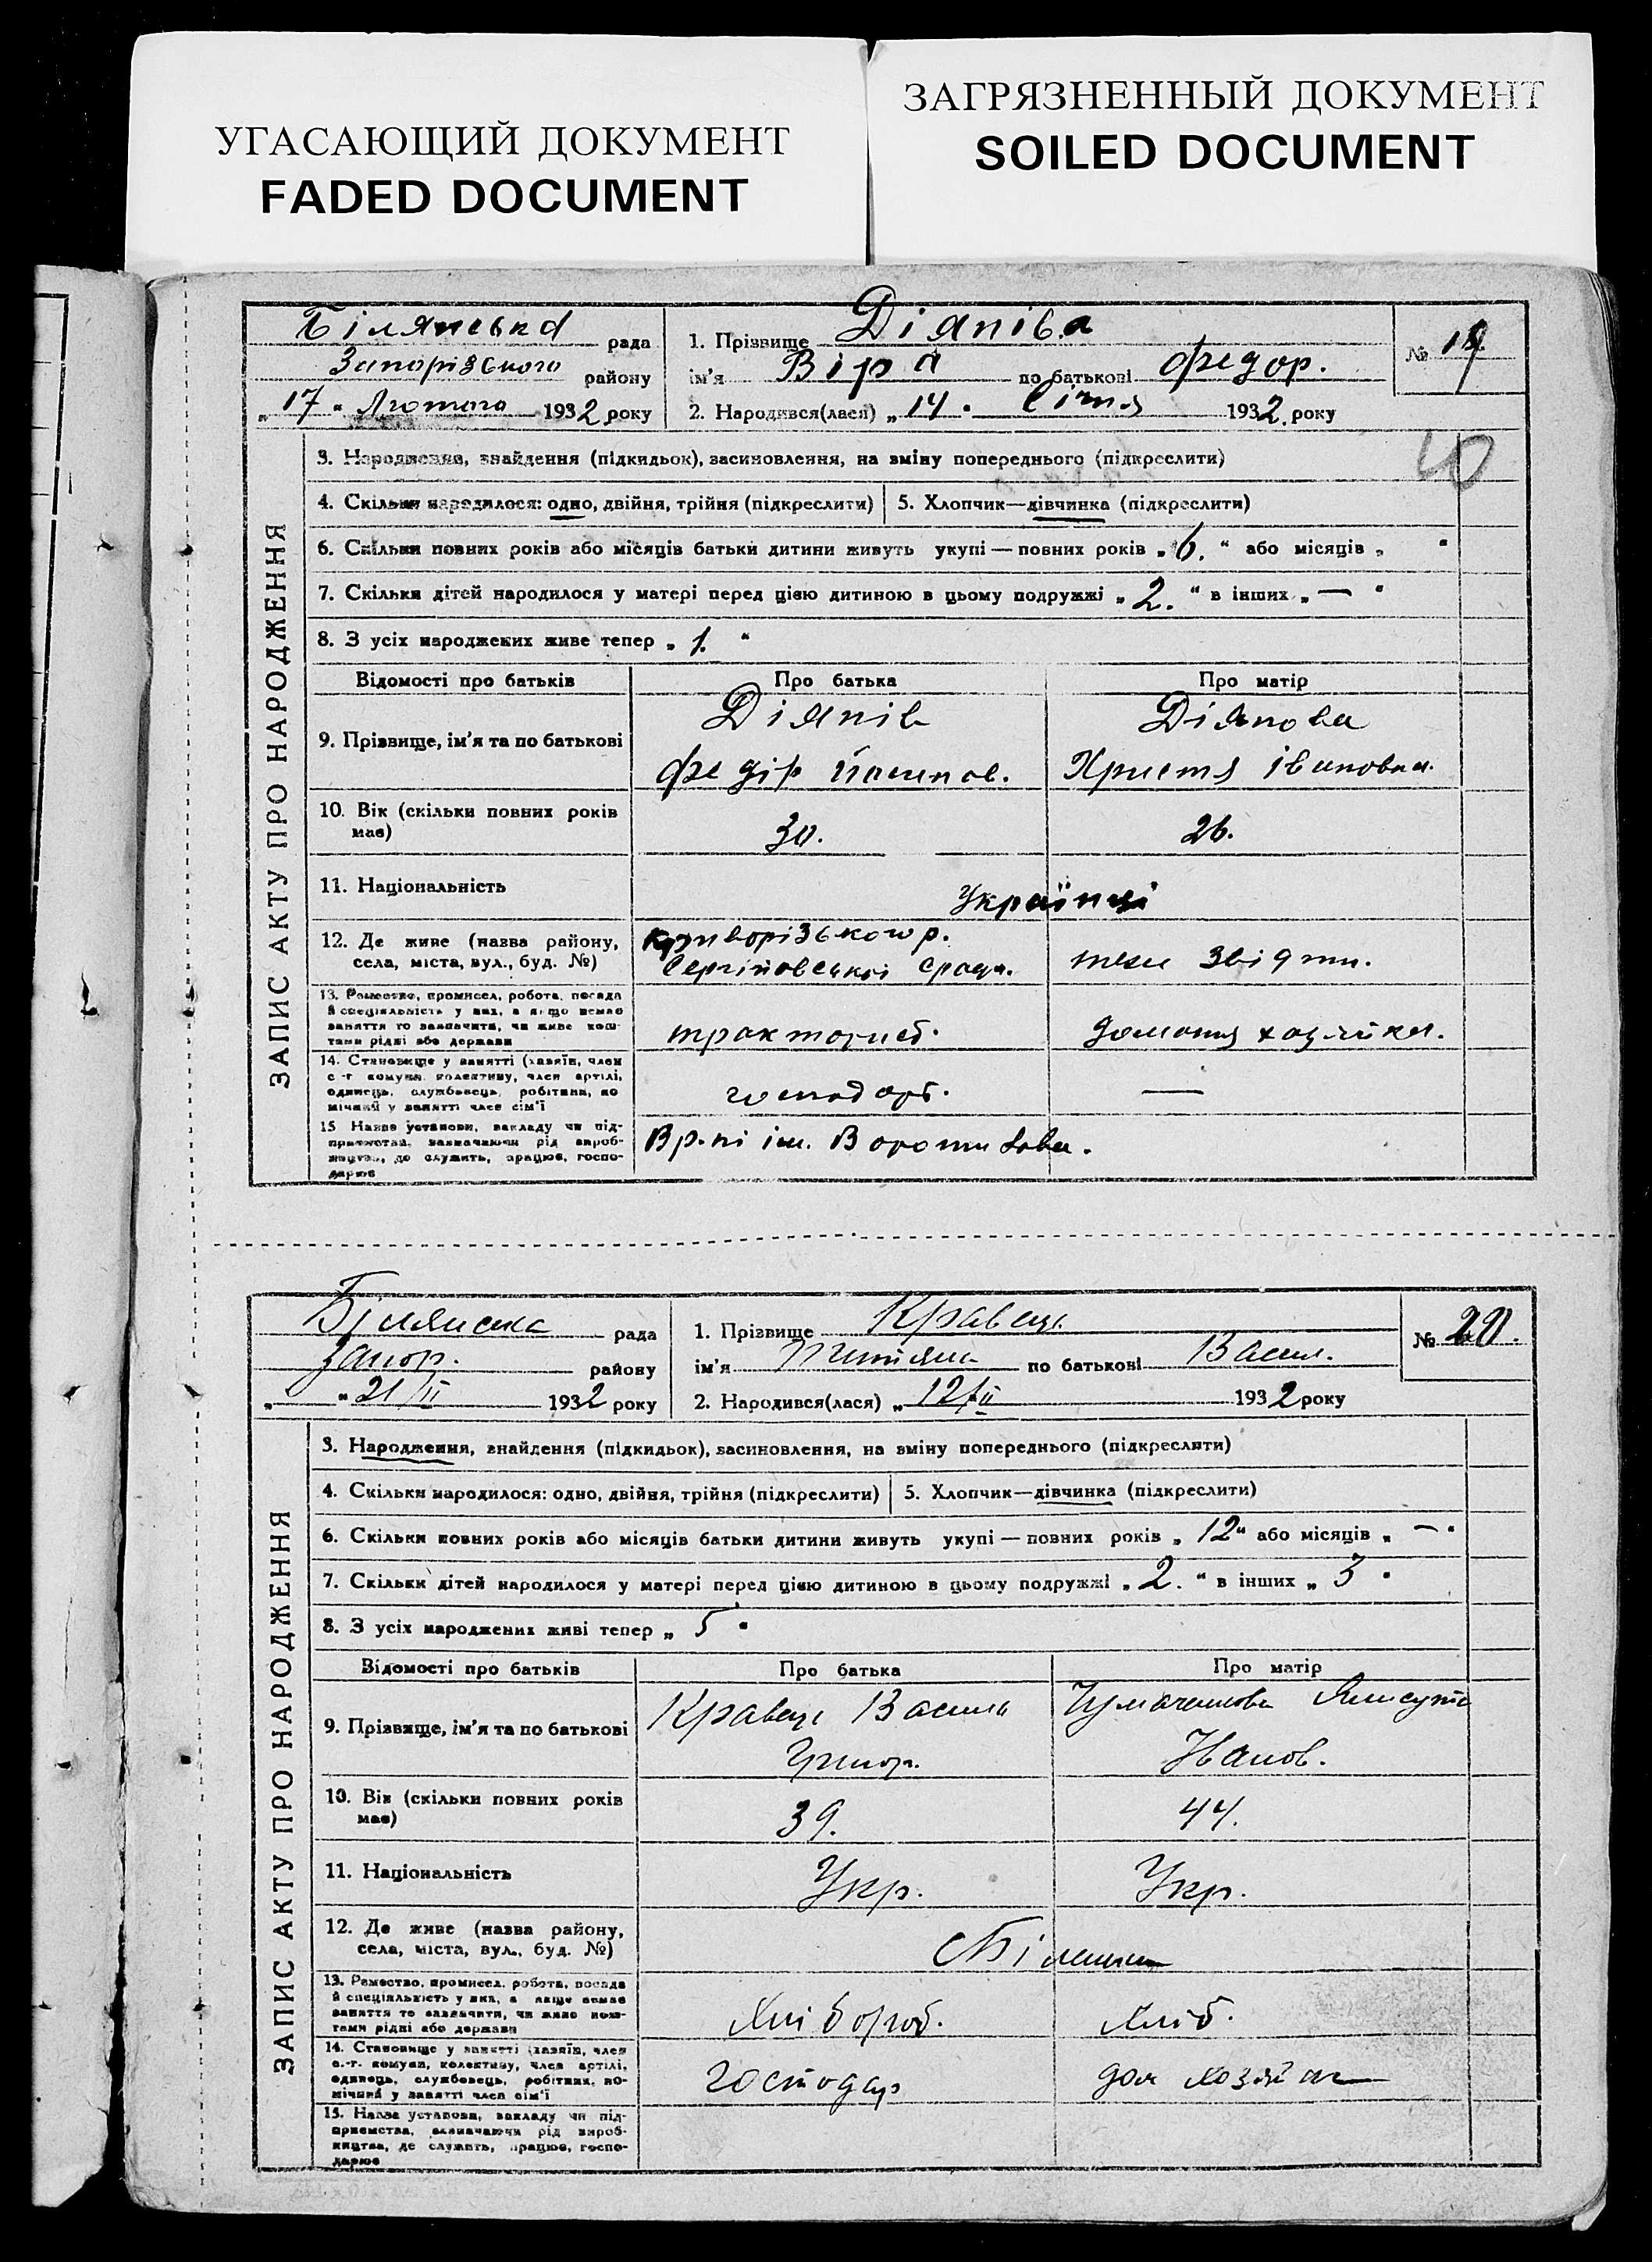 УГАСАЮЩИЙ ДОКУМЕНТ
FADED DOCUMENT
ЗАГРЯЗНЕННЫЙ ДОКУМЕНТ
SOILED DOCUMENT
Білянська рада
Запорізького району
„17“ Лютого 1932 року
1. Прізвище Діяніва
ім'я Віра по батькові Федор.
2. Народився(лася) „14“ Січня 1932 року
№ 19
10
ЗАПИС АКТУ ПРО НАРОДЖЕННЯ
3. Народження, знайдення (підкидьок), засиновлення, на зміну попереднього (підкреслити)
4. Скільки народилося: одно, двійня, трійня (підкреслити)
5. Хлопчик—дівчинка (підкреслити)
6. Скільки повних років або місяців батьки дитини живуть укупі — повних років „6.“ або місяців „ “
7. Скільки дітей народилося у матері перед цією дитиною в цьому подружжі „2.“ в інших „—“
8. З усіх народжених живе тепер „1.“
Відомості про батьків
Про батька
Про матір
9. Прізвище, ім'я та по батькові
Діянів
Федір
Діянова
Христя Івановна.
10. Вік (скільки повних років має)
30.
26.
11. Національність
Українці
12. Де живе (назва району, села, міста, вул., буд. №)
Криворізького р.
Сергіївської сради.
теж звідти.
13. Ремество, промисел, робота, посада й спеціяльність у них, а якщо немає заняття то зазначити, чи живе коштами рідні або держави
тракторист.
домашня хазяйка.
14. Становище у занятті (хазяїн, член с.-г. комуни, колективу, член артілі, одинець, службовець, робітник, помічний у занятті член сім'ї
господарь.
—
15. Назва установи, закладу чи підприємства, зазначаючи рід виробництва, де служить, працює, господарює
ім. Ворошилова.
Білянська рада
Запор. району
„ “ 21/II 1932 року
1. Прізвище Кравець
ім'я Титяна по батькові Васил.
2. Народився(лася) „12/II 1932 року
№ 20.
ЗАПИС АКТУ ПРО НАРОДЖЕННЯ
3. Народження, знайдення (підкидьок), засиновлення, на зміну попереднього (підкреслити)
4. Скільки народилося: одно, двійня, трійня (підкреслити)
5. Хлопчик—дівчинка (підкреслити)
6. Скільки повних років або місяців батьки дитини живуть укупі — повних років „12“ або місяців „—“
7. Скільки дітей народилося у матері перед цією дитиною в цьому подружжі „2.“ в інших „3“
8. З усіх народжених живі тепер „5“
Відомості про батьків
Про батька
Про матір
9. Прізвище, ім'я та по батькові
Кравець Василь
Григор.
Иванов.
10. Вік (скільки повних років має)
39.
44.
11. Національність
Укр.
Укр.
12. Де живе (назва району, села, міста, вул., буд. №)
13. Ремество, промисел, робота, посада й спеціяльність у них, а якщо немає заняття то зазначити, чи живе коштами рідні або держави
Хлібороб.
Хліб.
14. Становище у занятті (хазяїн, член с.-г. комуни, колективу, член артілі, одинець, службовець, робітник, помічний у занятті член сім'ї
господар
дом хозяйка
15. Назва установи, закладу чи підприємства, зазначаючи рід виробництва, де служить, працює, господарює